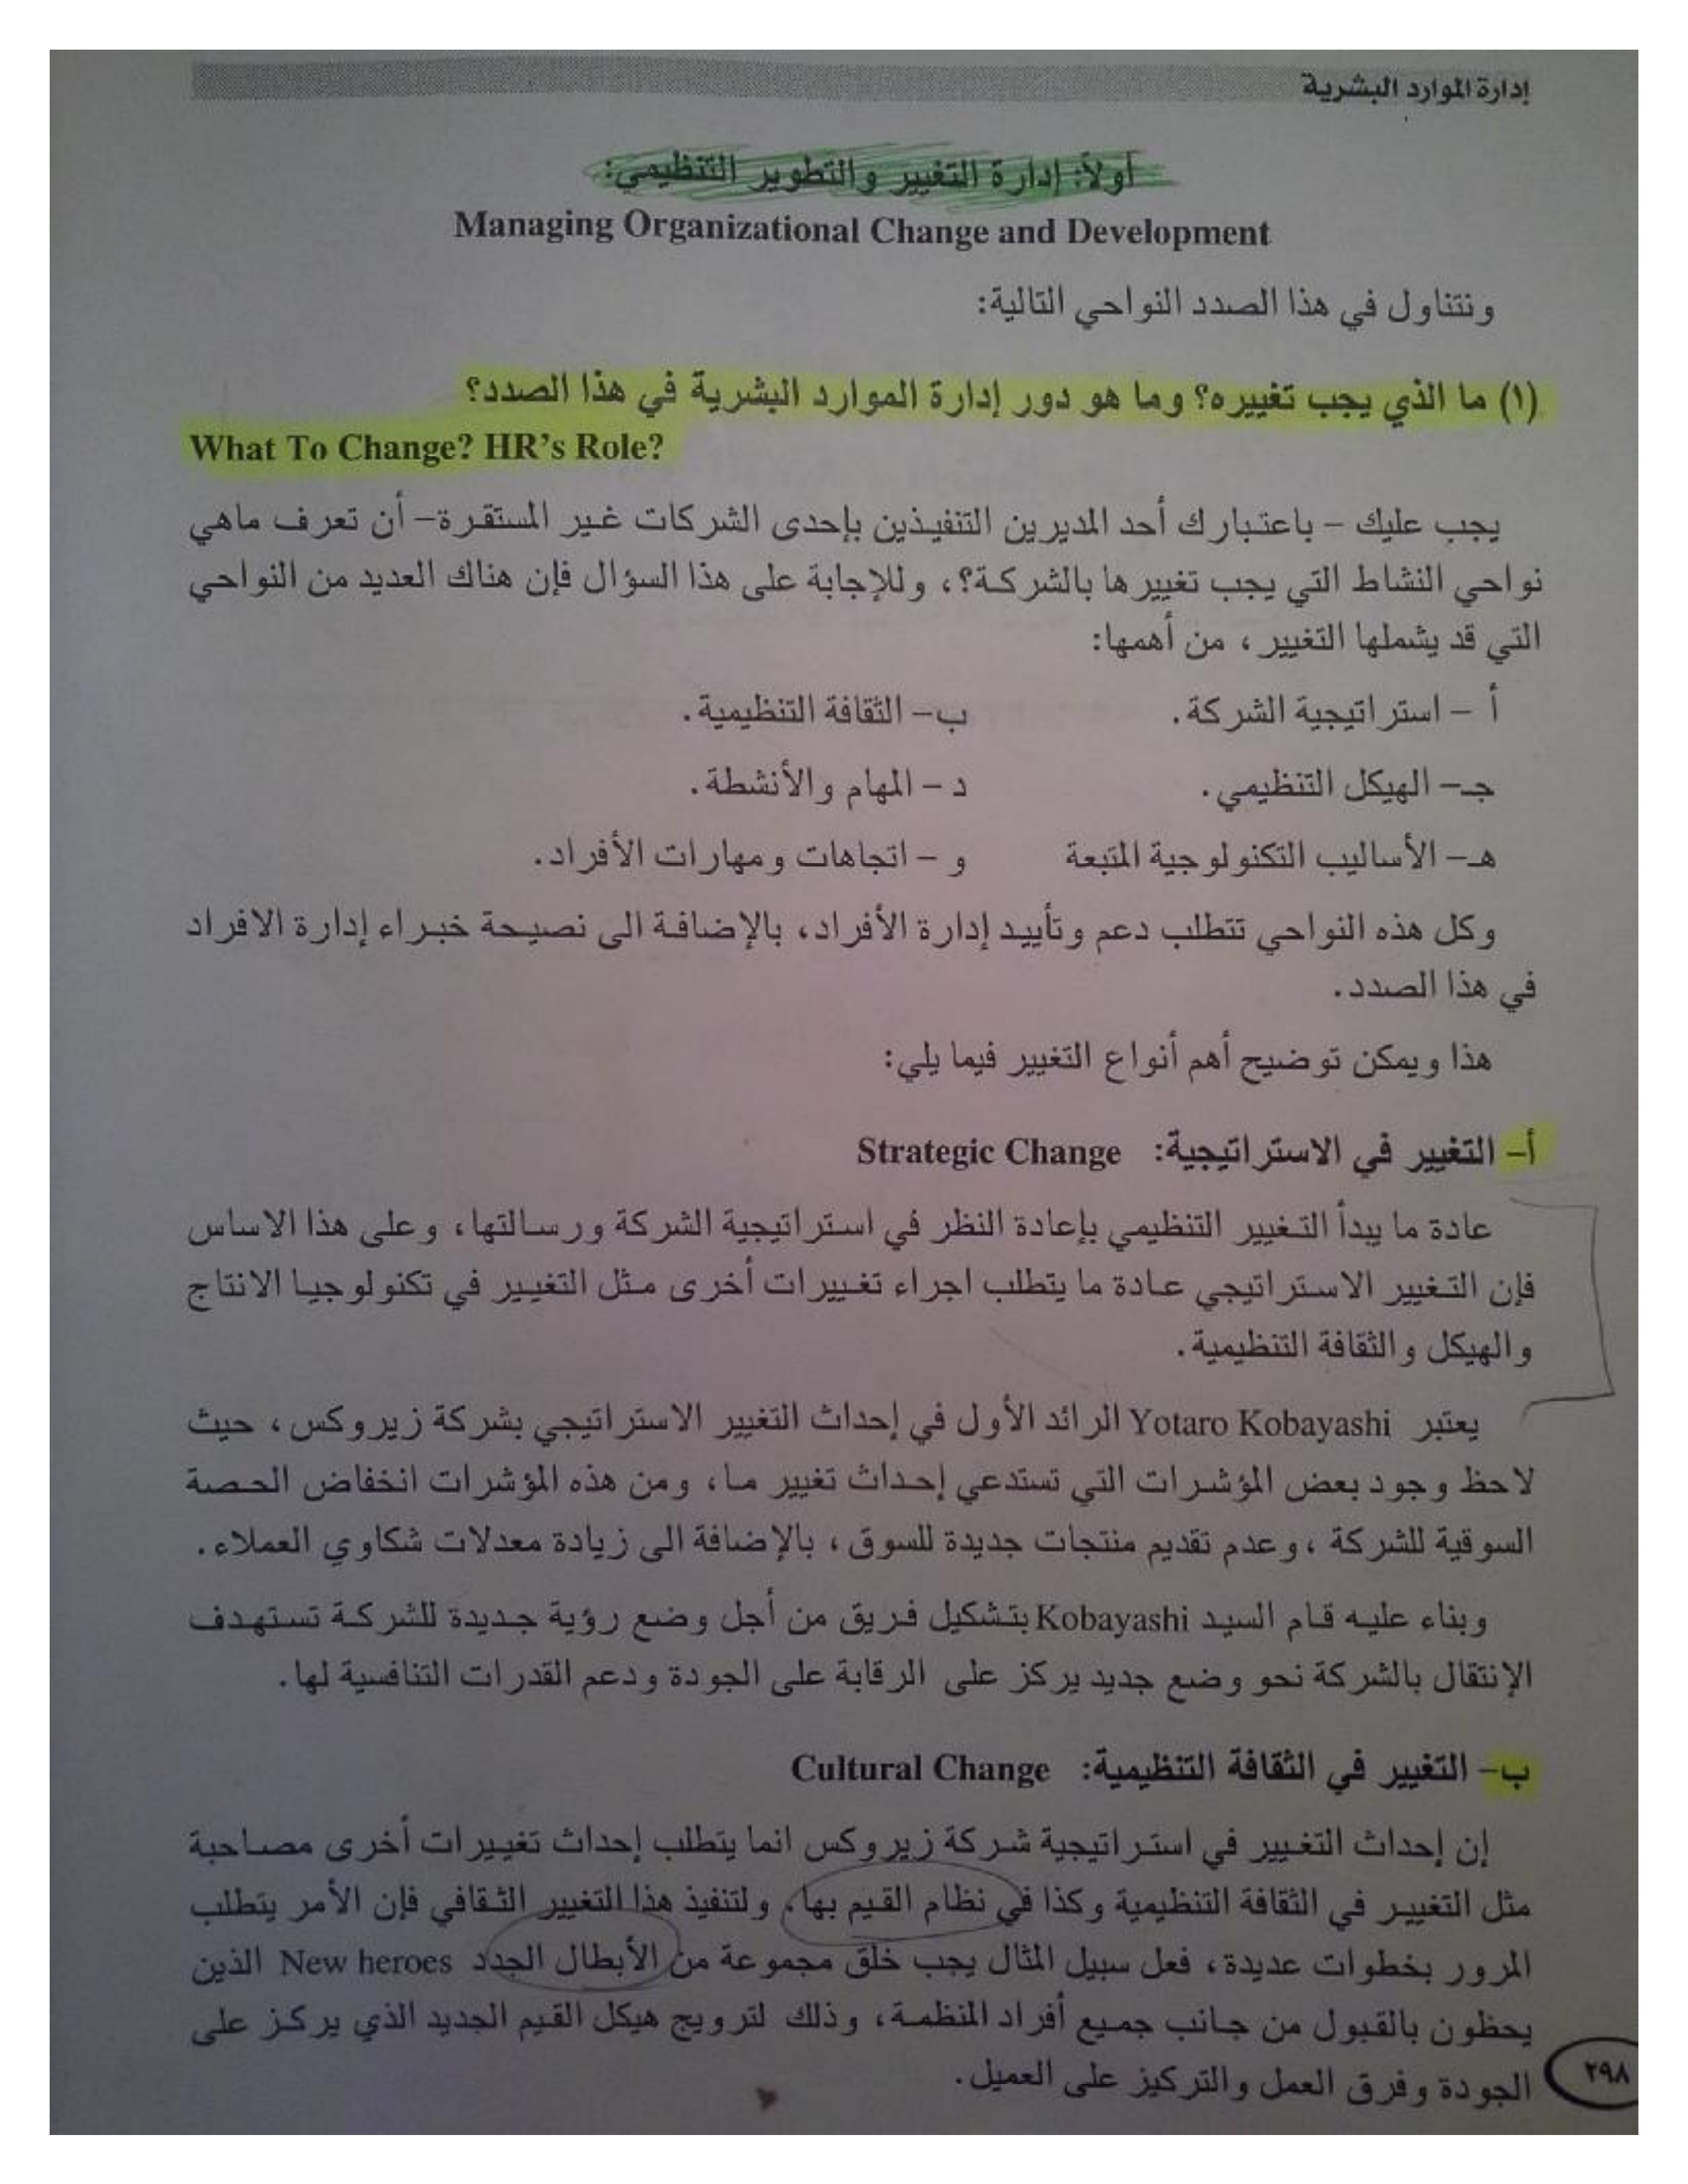 إدارة الموارد البشرية
أولاً: إدارة التغيير والتطوير التنظيمي:
Managing Organizational Change and Development
ونتناول في هذا الصدد النواحي التالية:
(١) ما الذي يجب تغييره؟ وما هو دور إدارة الموارد البشرية في هذا الصدد؟
What To Change? HR's Role?
يجب عليك – باعتبارك أحد المديرين التنفيذين بإحدى الشركات غير المستقرة– أن تعرف ماهي
نواحي النشاط التي يجب تغييرها بالشركة؟، وللإجابة على هذا السؤال فإن هناك العديد من النواحي
التي قد يشملها التغيير، من أهمها:
أ – استراتيجية الشركة. ب– الثقافة التنظيمية.
جـ– الهيكل التنظيمي. د – المهام والأنشطة.
هـ– الأساليب التكنولوجية المتبعة و – اتجاهات ومهارات الأفراد.
وكل هذه النواحي تتطلب دعم وتأييد إدارة الأفراد، بالإضافة الى نصيحة خبراء إدارة الافراد
في هذا الصدد.
هذا ويمكن توضيح أهم أنواع التغيير فيما يلي:
أ– التغيير في الاستراتيجية: Strategic Change
عادة ما يبدأ التغيير التنظيمي بإعادة النظر في استراتيجية الشركة ورسالتها، وعلى هذا الاساس
فإن التغيير الاستراتيجي عادة ما يتطلب اجراء تغييرات أخرى مثل التغيير في تكنولوجيا الانتاج
والهيكل والثقافة التنظيمية.
يعتبر Yotaro Kobayashi الرائد الأول في إحداث التغيير الاستراتيجي بشركة زيروكس، حيث
لاحظ وجود بعض المؤشرات التي تستدعي إحداث تغيير ما، ومن هذه المؤشرات انخفاض الحصة
السوقية للشركة ، وعدم تقديم منتجات جديدة للسوق، بالإضافة الى زيادة معدلات شكاوي العملاء.
وبناء عليه قام السيد Kobayashi بتشكيل فريق من أجل وضع رؤية جديدة للشركة تستهدف
الإنتقال بالشركة نحو وضع جديد يركز على الرقابة على الجودة ودعم القدرات التنافسية لها.
ب– التغيير في الثقافة التنظيمية: Cultural Change
إن إحداث التغيير في استراتيجية شركة زيروكس انما يتطلب إحداث تغييرات أخرى مصاحبة
مثل التغيير في الثقافة التنظيمية وكذا في نظام القيم بها، ولتنفيذ هذا التغيير الثقافي فإن الأمر يتطلب
المرور بخطوات عديدة، فعل سبيل المثال يجب خلق مجموعة من الأبطال الجدد New heroes الذين
يحظون بالقبول من جانب جميع أفراد المنظمة، وذلك لترويج هيكل القيم الجديد الذي يركز على
الجودة وفرق العمل والتركيز على العميل.
٢٩٨